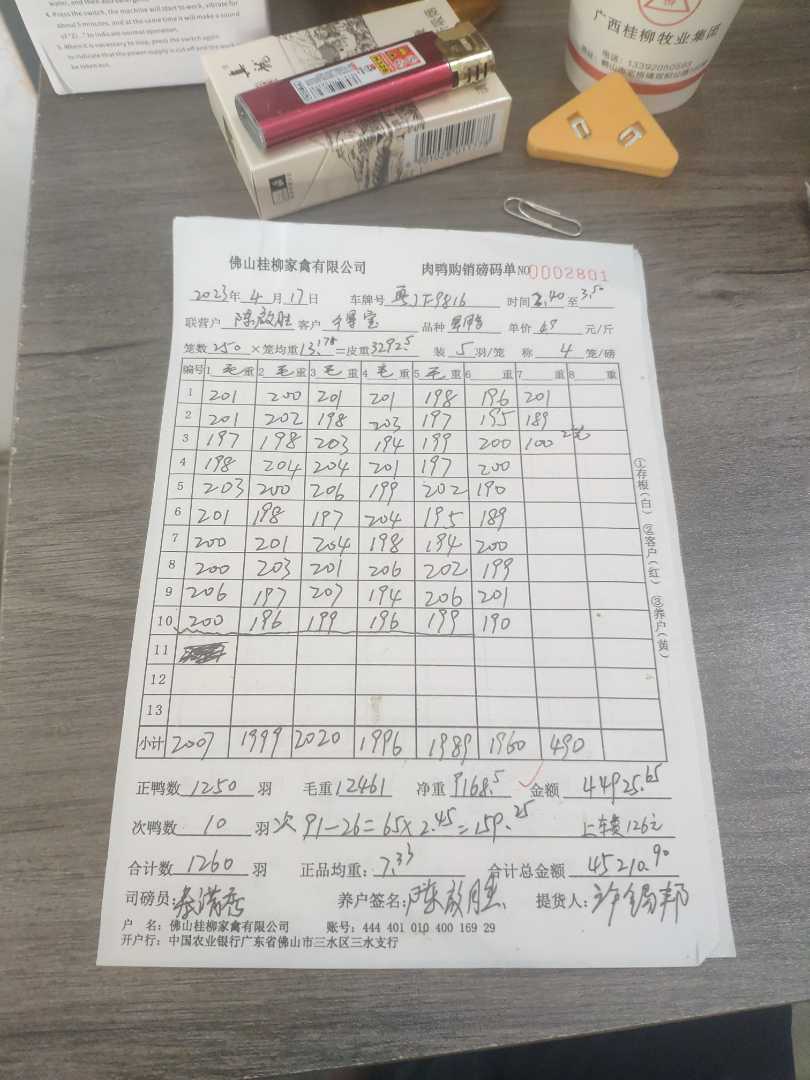 4. Press the switch, the machine will start to work, vibrate for
about 5 minutes, and at the same time it will make a sound
to indicate normal operation.
5. When it is necessary to stop, press the switch again
to indicate that the power supply is cut off and
be taken out.
广西桂柳牧业集团
电话：13392050583
佛山桂柳家禽有限公司 肉鸭购销磅码单 NO 0002801
2023年 4 月 17 日 车牌号 粤 F9816 时间 2.40 至 3.50
联营户 陈啟胜 客户 品种 单价 4.9 元/斤
笼数 250 ×笼均重 13.17 =皮重 3292.5 装 5 羽/笼 称 4 笼/磅
编号 1 毛 重 2 毛 重 3 毛 重 4 毛 重 5 毛 重 6 重 7 重 8 重
1 201 200 201 201 198 196 201
2 201 202 198 203 197 195 189
3 197 198 203 194 199 200 100 2笼
4 198 204 204 201 197 200
5 203 200 206 199 202 190
6 201 198 197 204 195 189
7 200 201 204 198 194 200
8 200 203 201 206 202 199
9 206 197 207 194 206 201
10 200 196 199 196 199 190
11
12
13
小计 2007 1999 2020 1996 1989 1960 490
①存根(白) ②客户(红) ③养户(黄)
正鸭数 1250 羽 毛重 12461 净重 9168.5 金额 44925.65
次鸭数 10 羽 次 91-26=65×2.45=159.25 上车费126元
合计数 1260 羽 正品均重: 7.33 合计总金额 45210.90
司磅员: 秦满秀 养户签名: 陈啟胜 提货人: 许锡邦
户 名: 佛山桂柳家禽有限公司 账号: 444 401 010 400 169 29
开户行: 中国农业银行广东省佛山市三水区三水支行